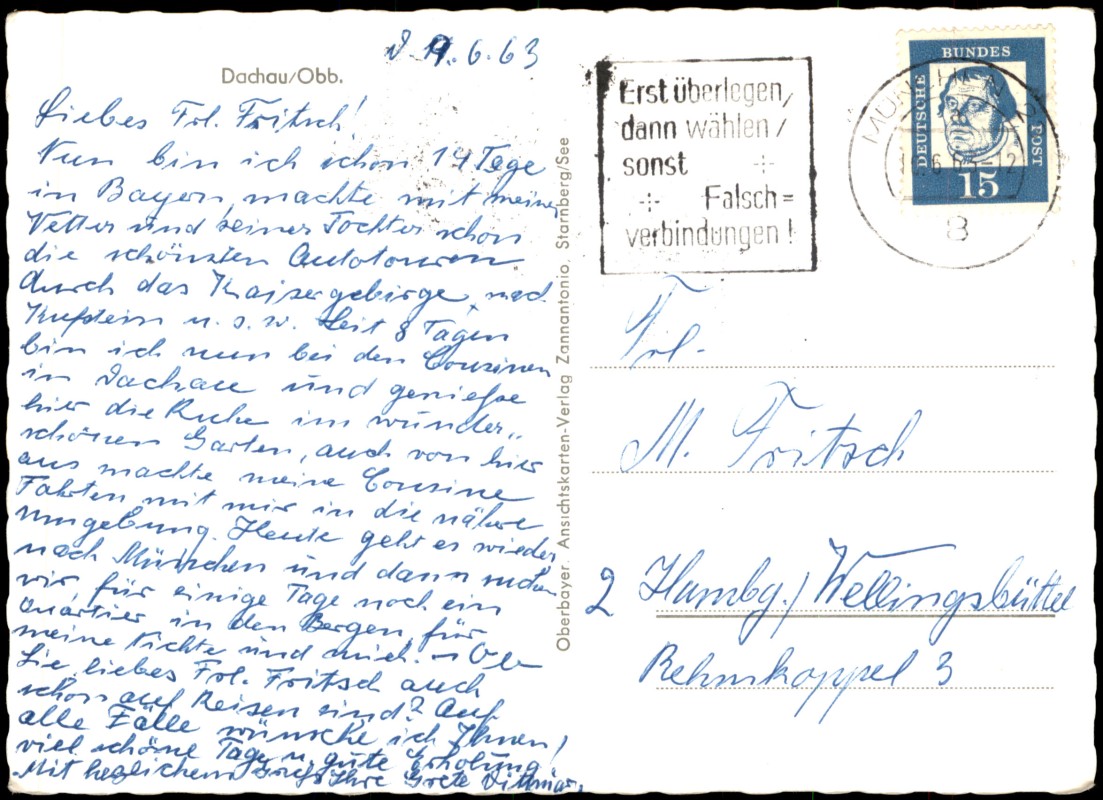 D. 9.6.63
Dachau/Obb.
Liebes Frl. Fritsch!
Nun bin ich schon 14 Tage
in Bayern, machte mit meinem
Vetter und seiner Tochter schon
die schönsten Autotouren
durch das Kaisergebirge, nach
Kufstein u. s. w. Seit 8 Tagen
bin ich nun bei den Cousinen
in Dachau und genieße
hier die Ruhe im wunder„
schönen Garten, auch von hier
aus machte meine Cousine
Fahrten mit mir in die nähere
Umgebung. Heute geht es wieder
nach München und dann suchen
wir für einige Tage noch ein
Quartier in den Bergen, für
meine Nichte und mich. – Ob
Sie, liebes Frl. Fritsch auch
schon auf Reisen sind? Auf
alle Fälle wünsche ich Ihnen
viel schöne Tage u. gute Erholung!
Mit herzlichem Gruß Ihre Grete Dittmar
Oberbayer. Ansichtskarten-Verlag Zannantonio, Starnberg/See
Erst überlegen,
dann wählen/
sonst
Falsch=
verbindungen!
MÜNCHEN 2
8
DEUTSCHE
BUNDES
POST
15
Frl.
M. Fritsch
2 Hambg./Wellingsbüttel
Rehmkoppel 3